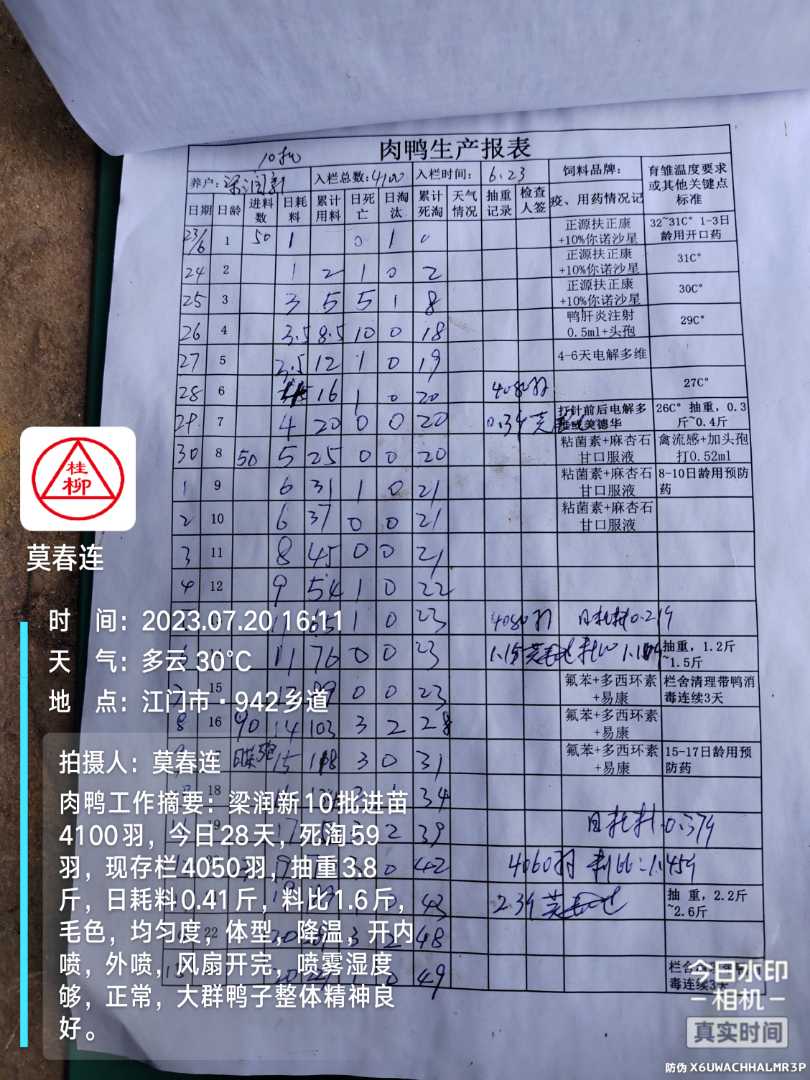 10批
肉鸭生产报表
养户: 梁润新 入栏总数:4100 入栏时间: 6.23 饲料品牌: 育雏温度要求或其他关键点标准
日期 日龄 进料数 日耗料 累计用料 日死亡 日淘汰 累计死淘 天气情况 抽重记录 检查人签 疫、用药情况记
23/6 1 50 1 0 1 0 正源扶正康+10%你诺沙星 32~31C° 1-3日龄用开口药
24 2 1 2 1 0 2 正源扶正康+10%你诺沙星 31C°
25 3 3 5 5 1 8 正源扶正康+10%你诺沙星 30C°
26 4 3.5 8.5 10 0 18 鸭肝炎注射0.5ml+头孢 29C°
27 5 3.5 12 1 0 19 4-6天电解多维
28 6 16 1 0 20 4080羽 27C°
29 7 4 20 0 0 20 0.39 打针前后电解多 26C° 抽重，0.3斤~0.4斤
30 8 50 5 25 0 0 20 粘菌素+麻杏石甘口服液 禽流感+加头孢打0.52ml
1 9 6 31 1 0 21 粘菌素+麻杏石甘口服液 8-10日龄用预防药
2 10 6 37 0 0 21 粘菌素+麻杏石甘口服液
3 11 8 45 0 0 21
4 12 9 54 1 0 22
1 0 23 4080羽 日耗料0.219
11 76 0 0 23 抽重，1.2斤~1.5斤
7 15 0 0 23 氟苯+多西环素+易康 栏舍清理带鸭消毒连续3天
8 16 90 14 103 3 2 28 氟苯+多西环素+易康
15 118 3 0 31 氟苯+多西环素+易康 15-17日龄用预防药
18 34
19 2 39 日耗料0.379
0 42 4060羽 料比=1.0459
43 2.39 抽 重，2.2斤~2.6斤
22 3 2 48
0 49 毒连续3天
桂
柳
莫春连
时 间: 2023.07.20 16:11
天 气: 多云 30℃
地 点: 江门市·942乡道
拍摄人: 莫春连
肉鸭工作摘要: 梁润新10批进苗
4100羽，今日28天，死淘59
羽，现存栏4050羽，抽重3.8
斤，日耗料0.41斤，料比1.6斤，
毛色，均匀度，体型，降温，开内
喷，外喷，风扇开完，喷雾湿度
够，正常，大群鸭子整体精神良
好。
今日水印
相机
真实时间
防伪 X6UWACHHALMR3P